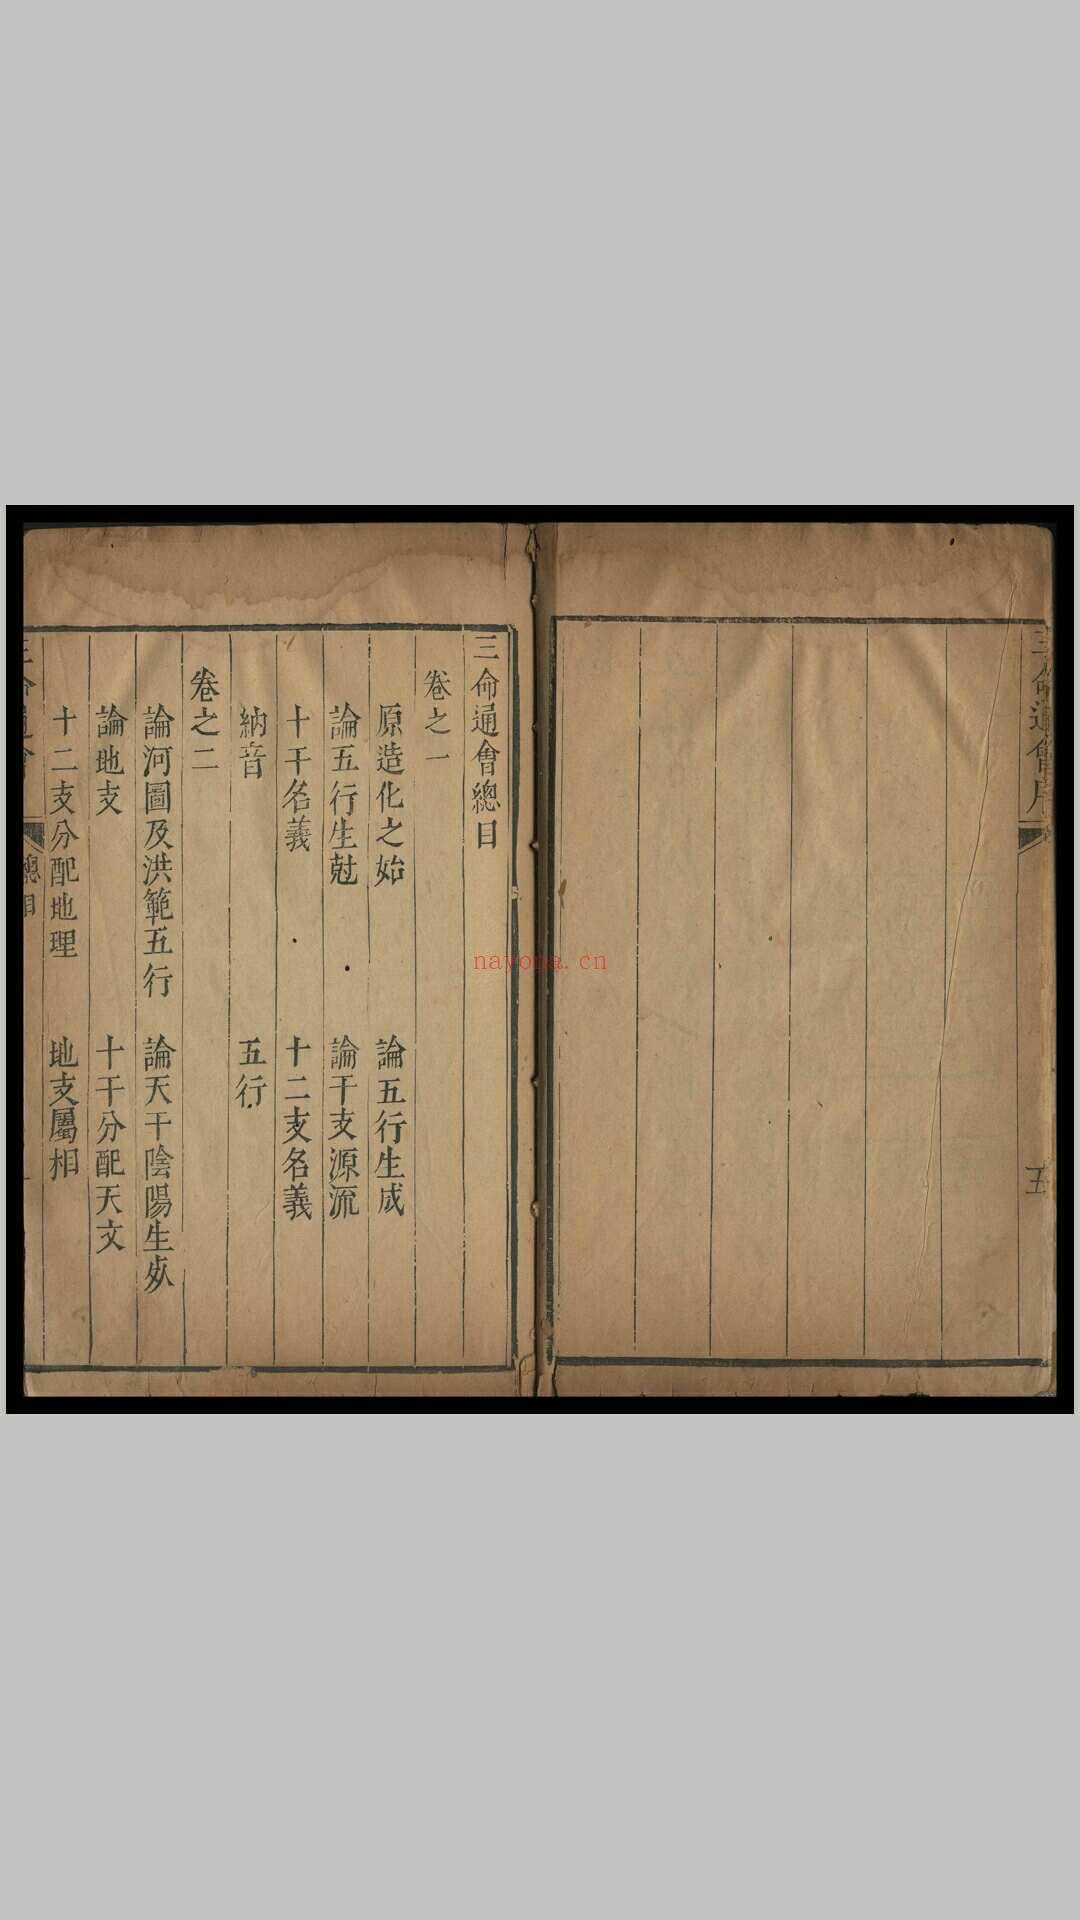 三命通會序
五
三命通會總目
卷之一
原造化之始　論五行生成
論五行生尅　論干支源流
十干名義　十二支名義
納音　五行
卷之二
論河圖及洪範五行　論天干陰陽生㱙
論地支　十干分配天文
十二支分配地理　地支屬相
三命通會
總目
nayona.cn